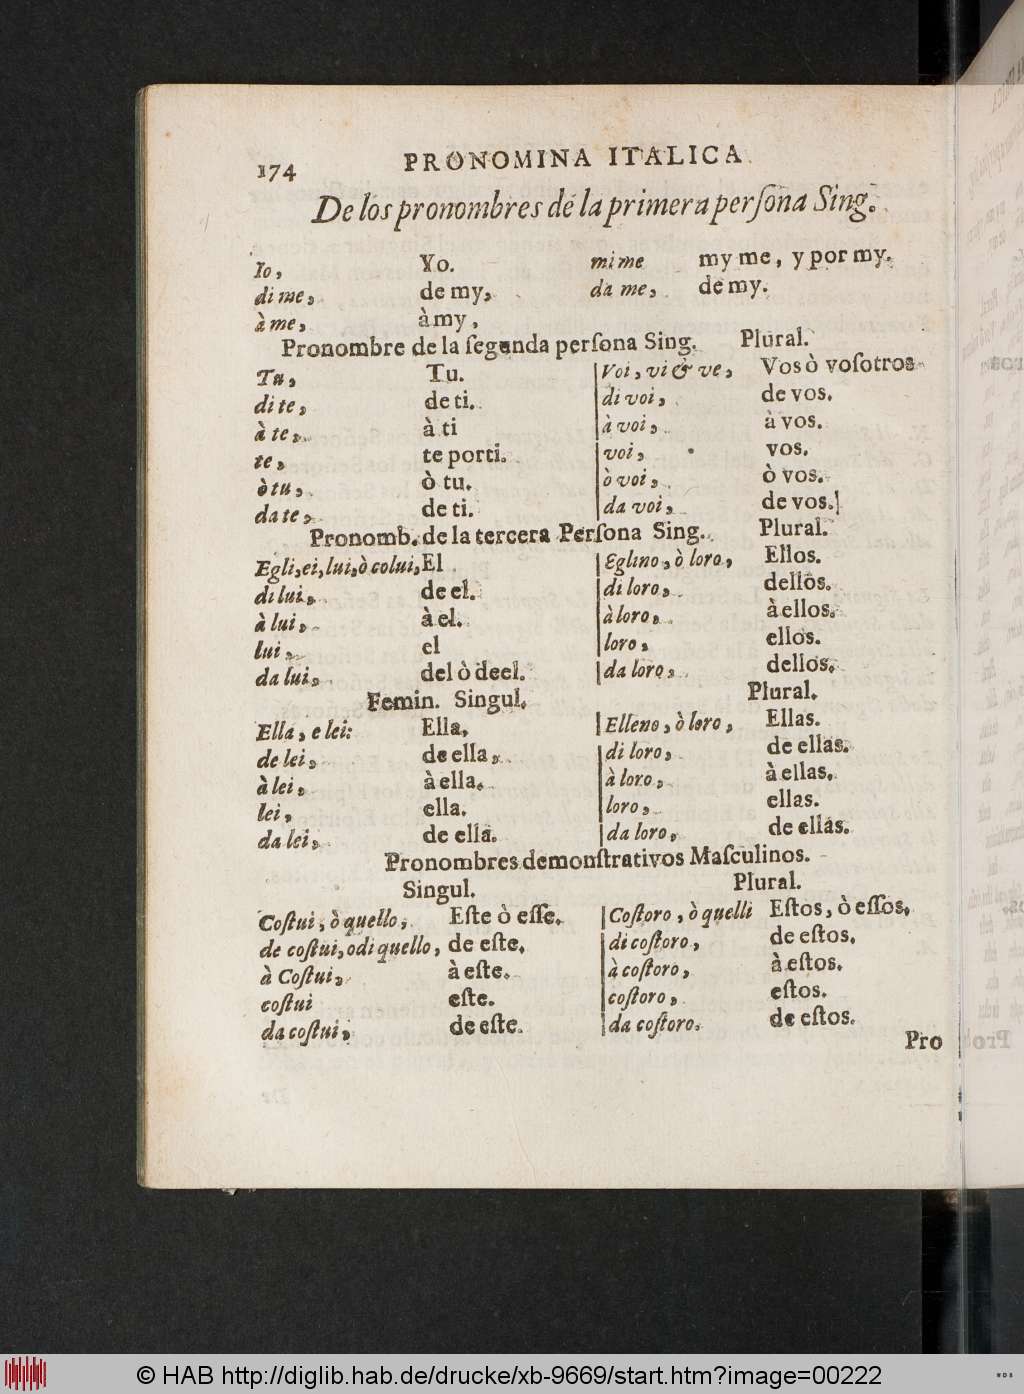 174 PRONOMINA ITALICA
De los pronombres de la primera perſona Sing.
Io, Yo. mi me my me, y por my.
di me, de my, da me, de my.
à me, à my,
Pronombre de la ſegunda perſona Sing. Plural.
Tu, Tu. Voi, vi & ve, Vos ò voſotros
di te, de ti. di voi, de vos.
à te, à ti à voi, à vos.
te, te porti. voi, vos.
ò tu, ò tu. ò voi, ò vos.
da te, de ti. da voi, de vos.
Pronomb. de la tercera Perſona Sing. Plural.
Egli, ei, lui, ò colui, El Eglino, ò loro, Ellos.
di lui, de el. di loro, dellos.
à lui, à el. à loro, à ellos.
lui, el loro, ellos.
da lui, del ò deel. da loro, dellos.
Femin. Singul. Plural.
Ella, e lei: Ella, Elleno, ò loro, Ellas.
de lei, de ella, di loro, de ellas.
à lei, à ella. à loro, à ellas.
lei, ella. loro, ellas.
da lei, de ella. da loro, de ellas.
Pronombres demonſtrativos Maſculinos.
Singul. Plural.
Coſtui, ò quello, Eſte ò eſſe. Coſtoro, ò quelli Eſtos, ò eſſos.
de coſtui, odi quello, de eſte. di coſtoro, de eſtos.
à Coſtui, à eſte. à coſtoro, à eſtos.
coſtui eſte. coſtoro, eſtos.
da coſtui, de eſte. da coſtoro. de eſtos.
Pro
© HAB http://diglib.hab.de/drucke/xb-9669/start.htm?image=00222